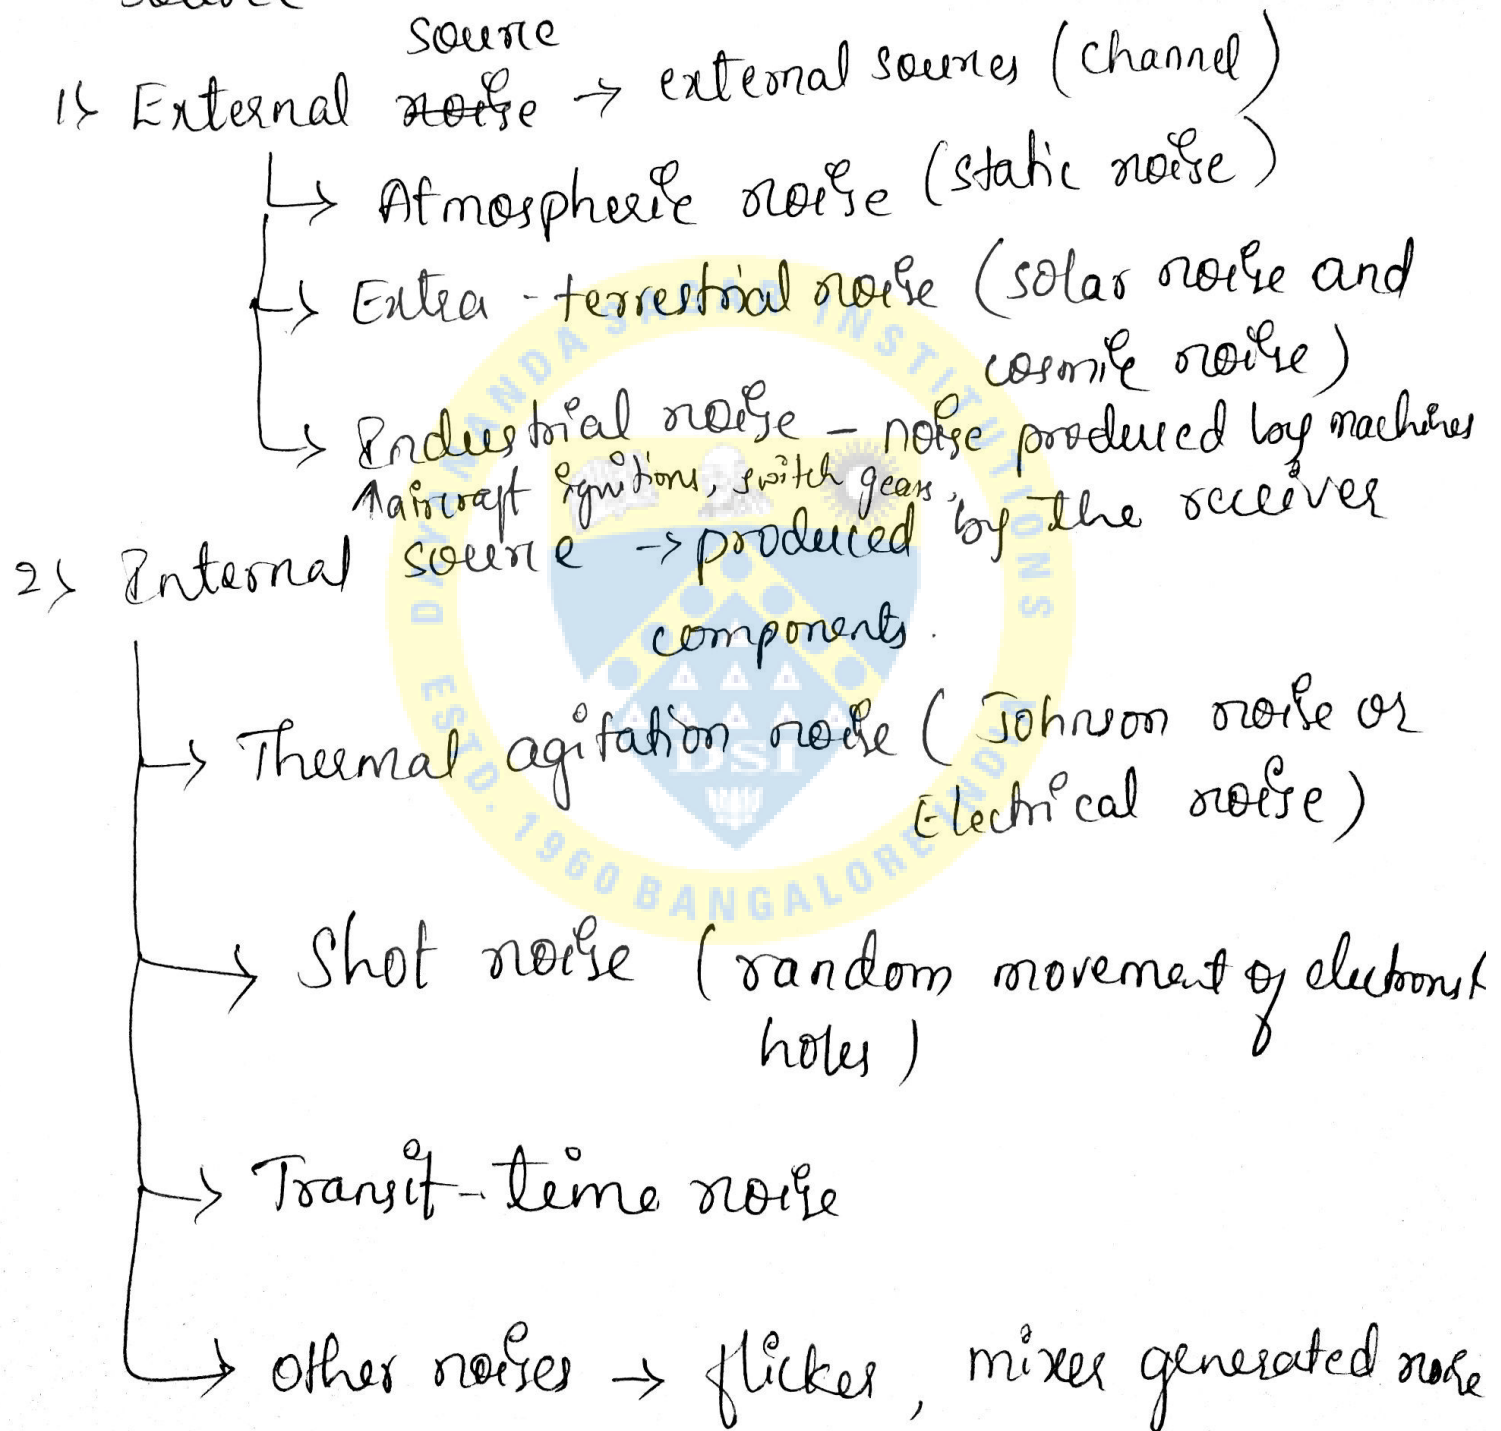 source
1) External noise → external sources (channel)
↳ Atmospheric noise (static noise)
→ Extra-terrestrial noise (solar noise and
cosmic noise)
↳ Industrial noise – noise produced by machines
aircraft ignitions, switch gears,
2) Internal source → produced by the receiver
components.
→ Thermal agitation noise (Johnson noise or
Electrical noise)
→ Shot noise (random movement of electrons &
holes)
→ Transit-time noise
→ Other noises → flicker, mixer generated noise
DAYANANDA SAGAR INSTITUTIONS
ESTD. 1960 BANGALORE INDIA
DSI